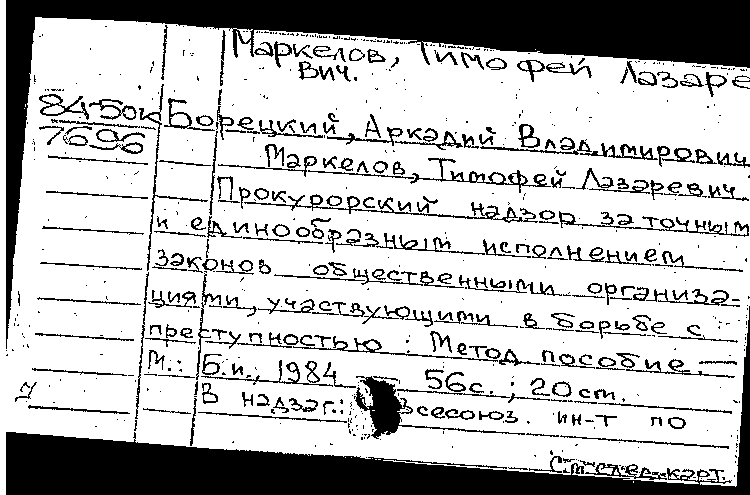 Маркелов, Тимофей Лазаре
вич.
84-50к
7696
Борецкий, Аркадий Владимирович
Маркелов, Тимофей Лазаревич.
Прокурорский надзор за точным
и единообразным исполнением
законов общественными организа-
циями, участвующими в борьбе с
преступностью: Метод. пособие. —
М.: Б.и., 1984 — 56с.; 20 cm.
В надзаг.: Всесоюз. ин-т по
См след. карт.